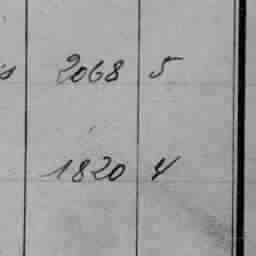 2068 5
1820 4